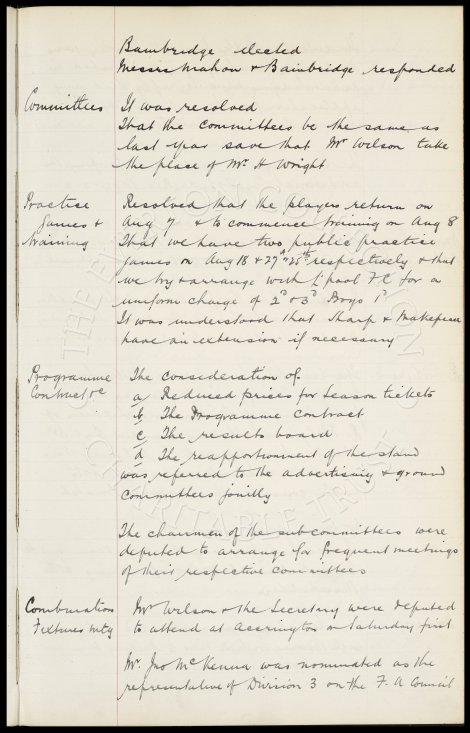 Bainbridge elected
Messrs Mahon & Bainbridge responded
Committees It was resolved
That the committees be the same as
last year save that Mr Wilson take
the place of Mr H Wright
Practice Resolved that the players return on
Games & Aug 7 & to commence training on Aug 8
training That we have two public practice
games on Aug 18 & respectively & that
we try & arrange with L'pool F C for a
uniform charge of 2d or 3d Boys 1d
It was understood that Sharp & Makepeace
have an extension if necessary
Programme The consideration of
Contract &c a/ Reduced prices for Season tickets
b/ The Programme contract
c/ The results board
d/ The reapportionment of the stand
was referred to the advertising & ground
committees jointly
The chairmen of the subcommittees were
deputed to arrange for frequent meetings
of their respective committees
Combination Mr Wilson & the Secretary were deputed
Fixtures mtg to attend at Accrington on Saturday first
Mr. Jno McKenna was nominated as the
representative of Division 3 on the F. A Council
THE EVERTON COLLECTION
CHARITABLE TRUST